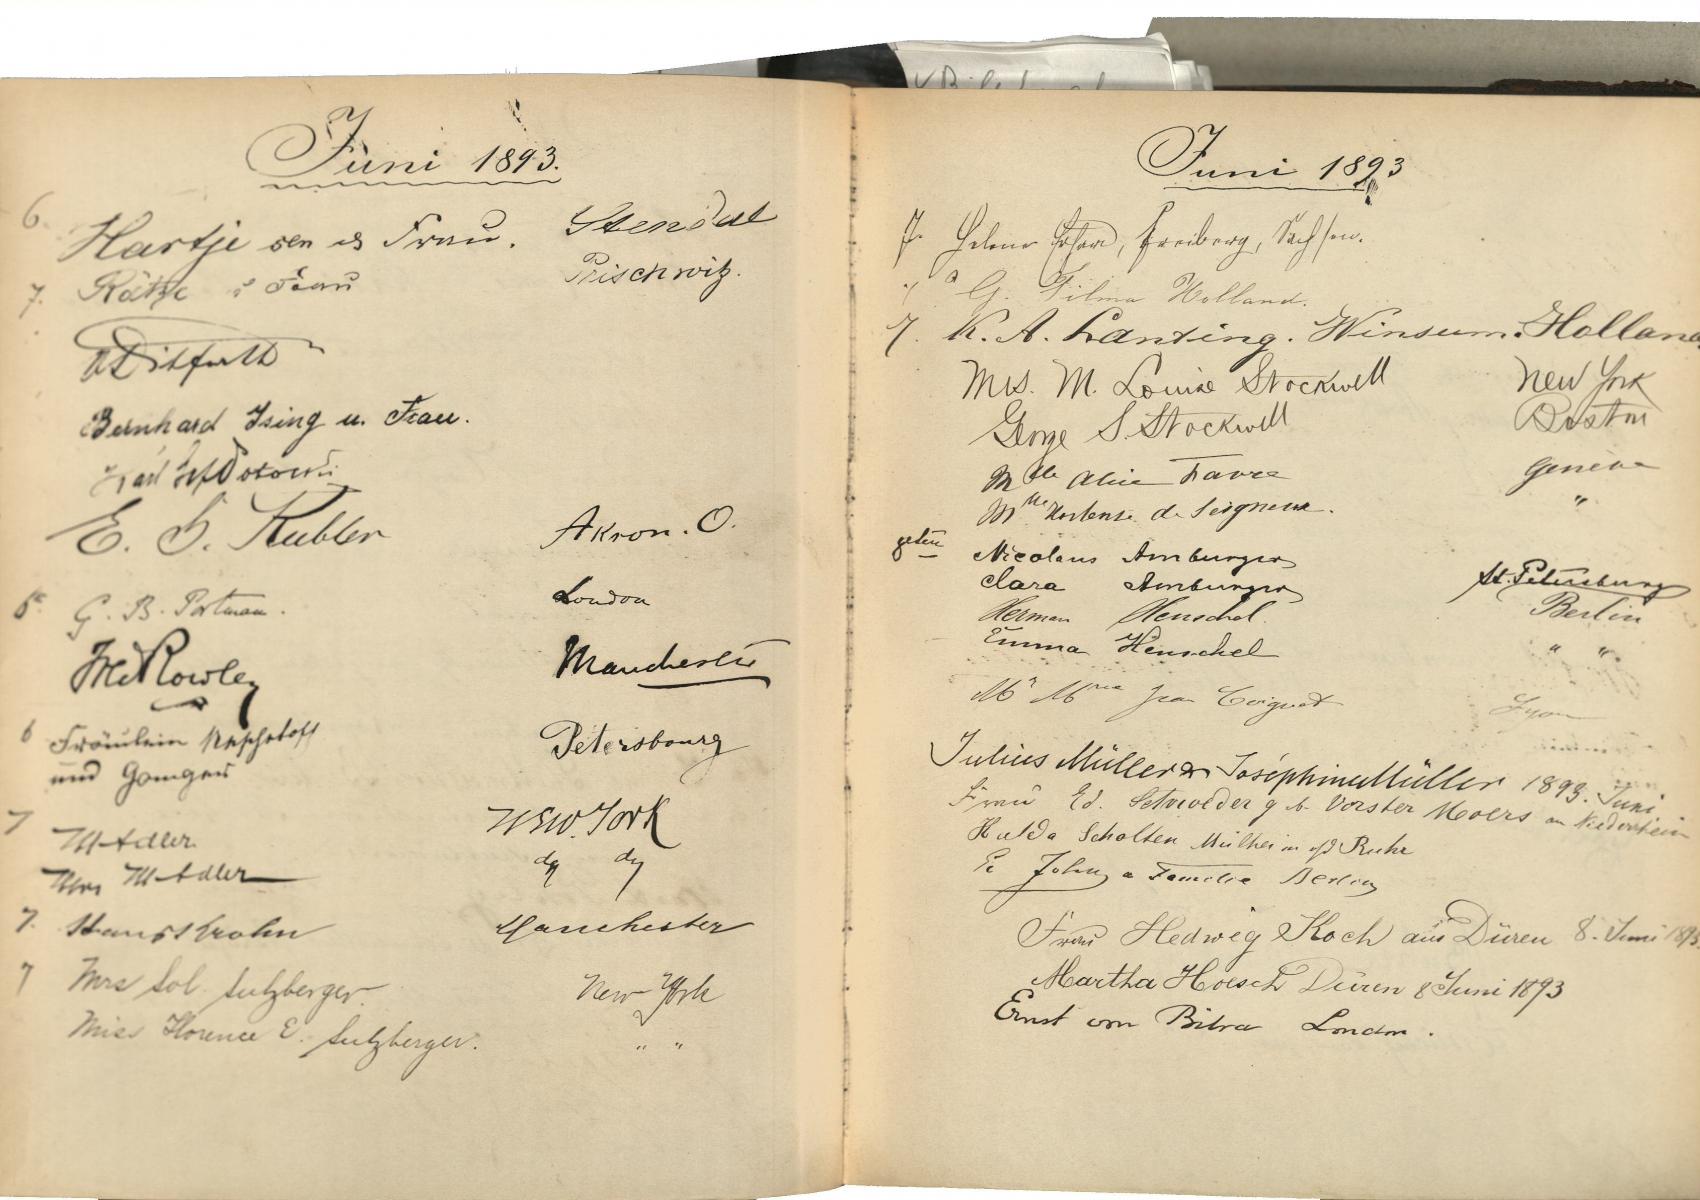 Juni 1893.
6. Hartje sen & Frau. Stendal
7. Rätze & Frau Prischwitz.
v Ditfurth
Bernhard Ising u. Frau.
Karl
E. G. Kubler Akron. O.
G. B. Portman. London
Rowley Manchester
6 Fräulein Petersbourg
und
7 M Adler New. York
Mrs M Adler do do
7. Hans Krohn Manchester
7 Mrs Sol. Sulzberger. New York
Miss Florence E. Sulzberger. " "
Juni 1893
7. Freiberg, Sachsen.
G. Tilma Holland.
7. K. A. Lanting. Winsum. Holland.
Mrs. M. Louise Stockwell New York
George S. Stockwell Boston
Mlle Alice Favre Genève
Mlle Hortense de Seigneux. "
Nicolaus Amburger St. Petersburg
Clara Amburger
Herman Henschel. Berlin
Emma Henschel " "
Mr Mme Jean Coignet Lyon
Julius Müller & Joséphine Müller 1893. Juni
Frau Ed. Schroeder g b. Vorster Moers am Niederrhein
Hulda Scholten Mülheim a/d Ruhr
E. John u Familie Berlin
Frau Hedwig Koch aus Düren 8. Juni 1893.
Martha Hoesch Düren 8 Juni 1893
Ernst von Bibra London.